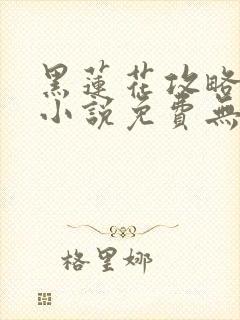 黑蓮花攻略
小說免費無
格里娜